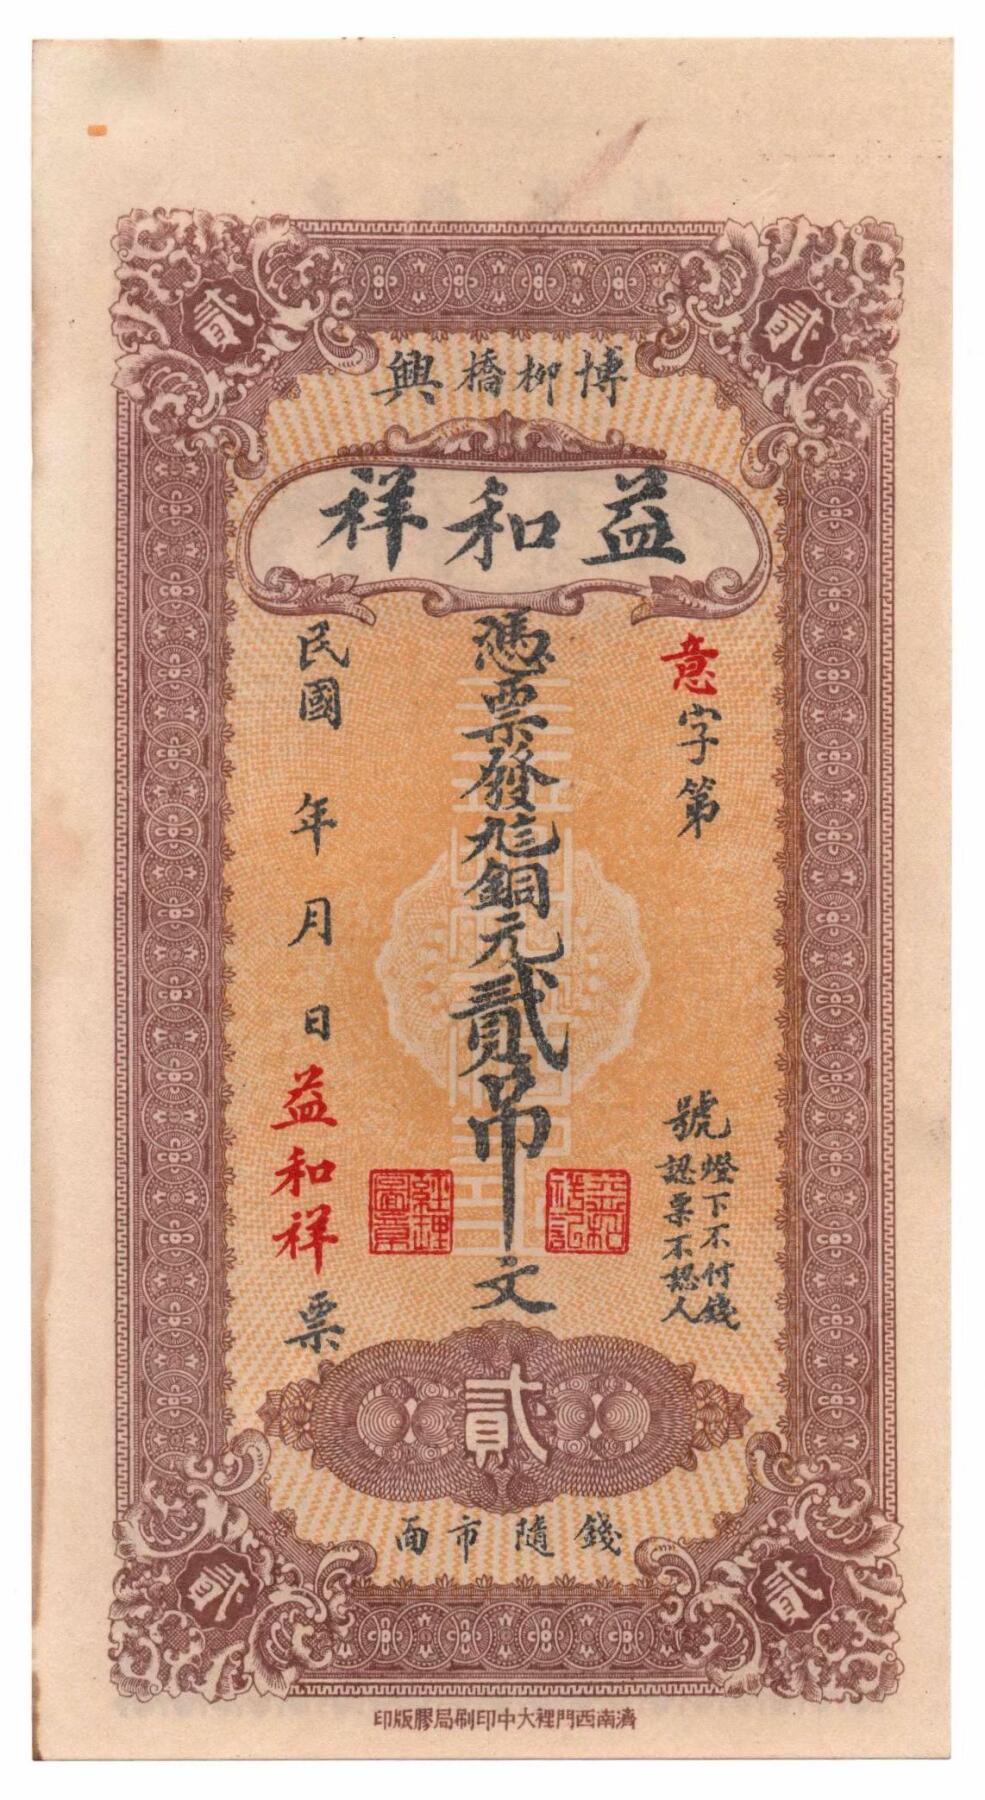 貳
貳
博柳橋興
益和祥
意字第
號
燈下不付錢
認票不認人
憑票發銅元貳吊文
益和祥記
經理圖章
民國 年 月 日 益和祥票
貳
錢隨市面
貳
貳
濟南西門裡大中印刷局膠版印